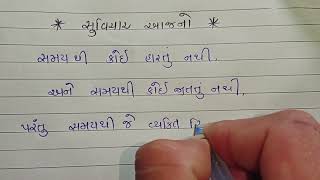 * સુવિચાર આજનો *
સમયથી કોઈ હારતું નથી.
અને સમયથી કોઈ જીતતું નથી.
પરંતુ સમયથી જે વ્યકિત